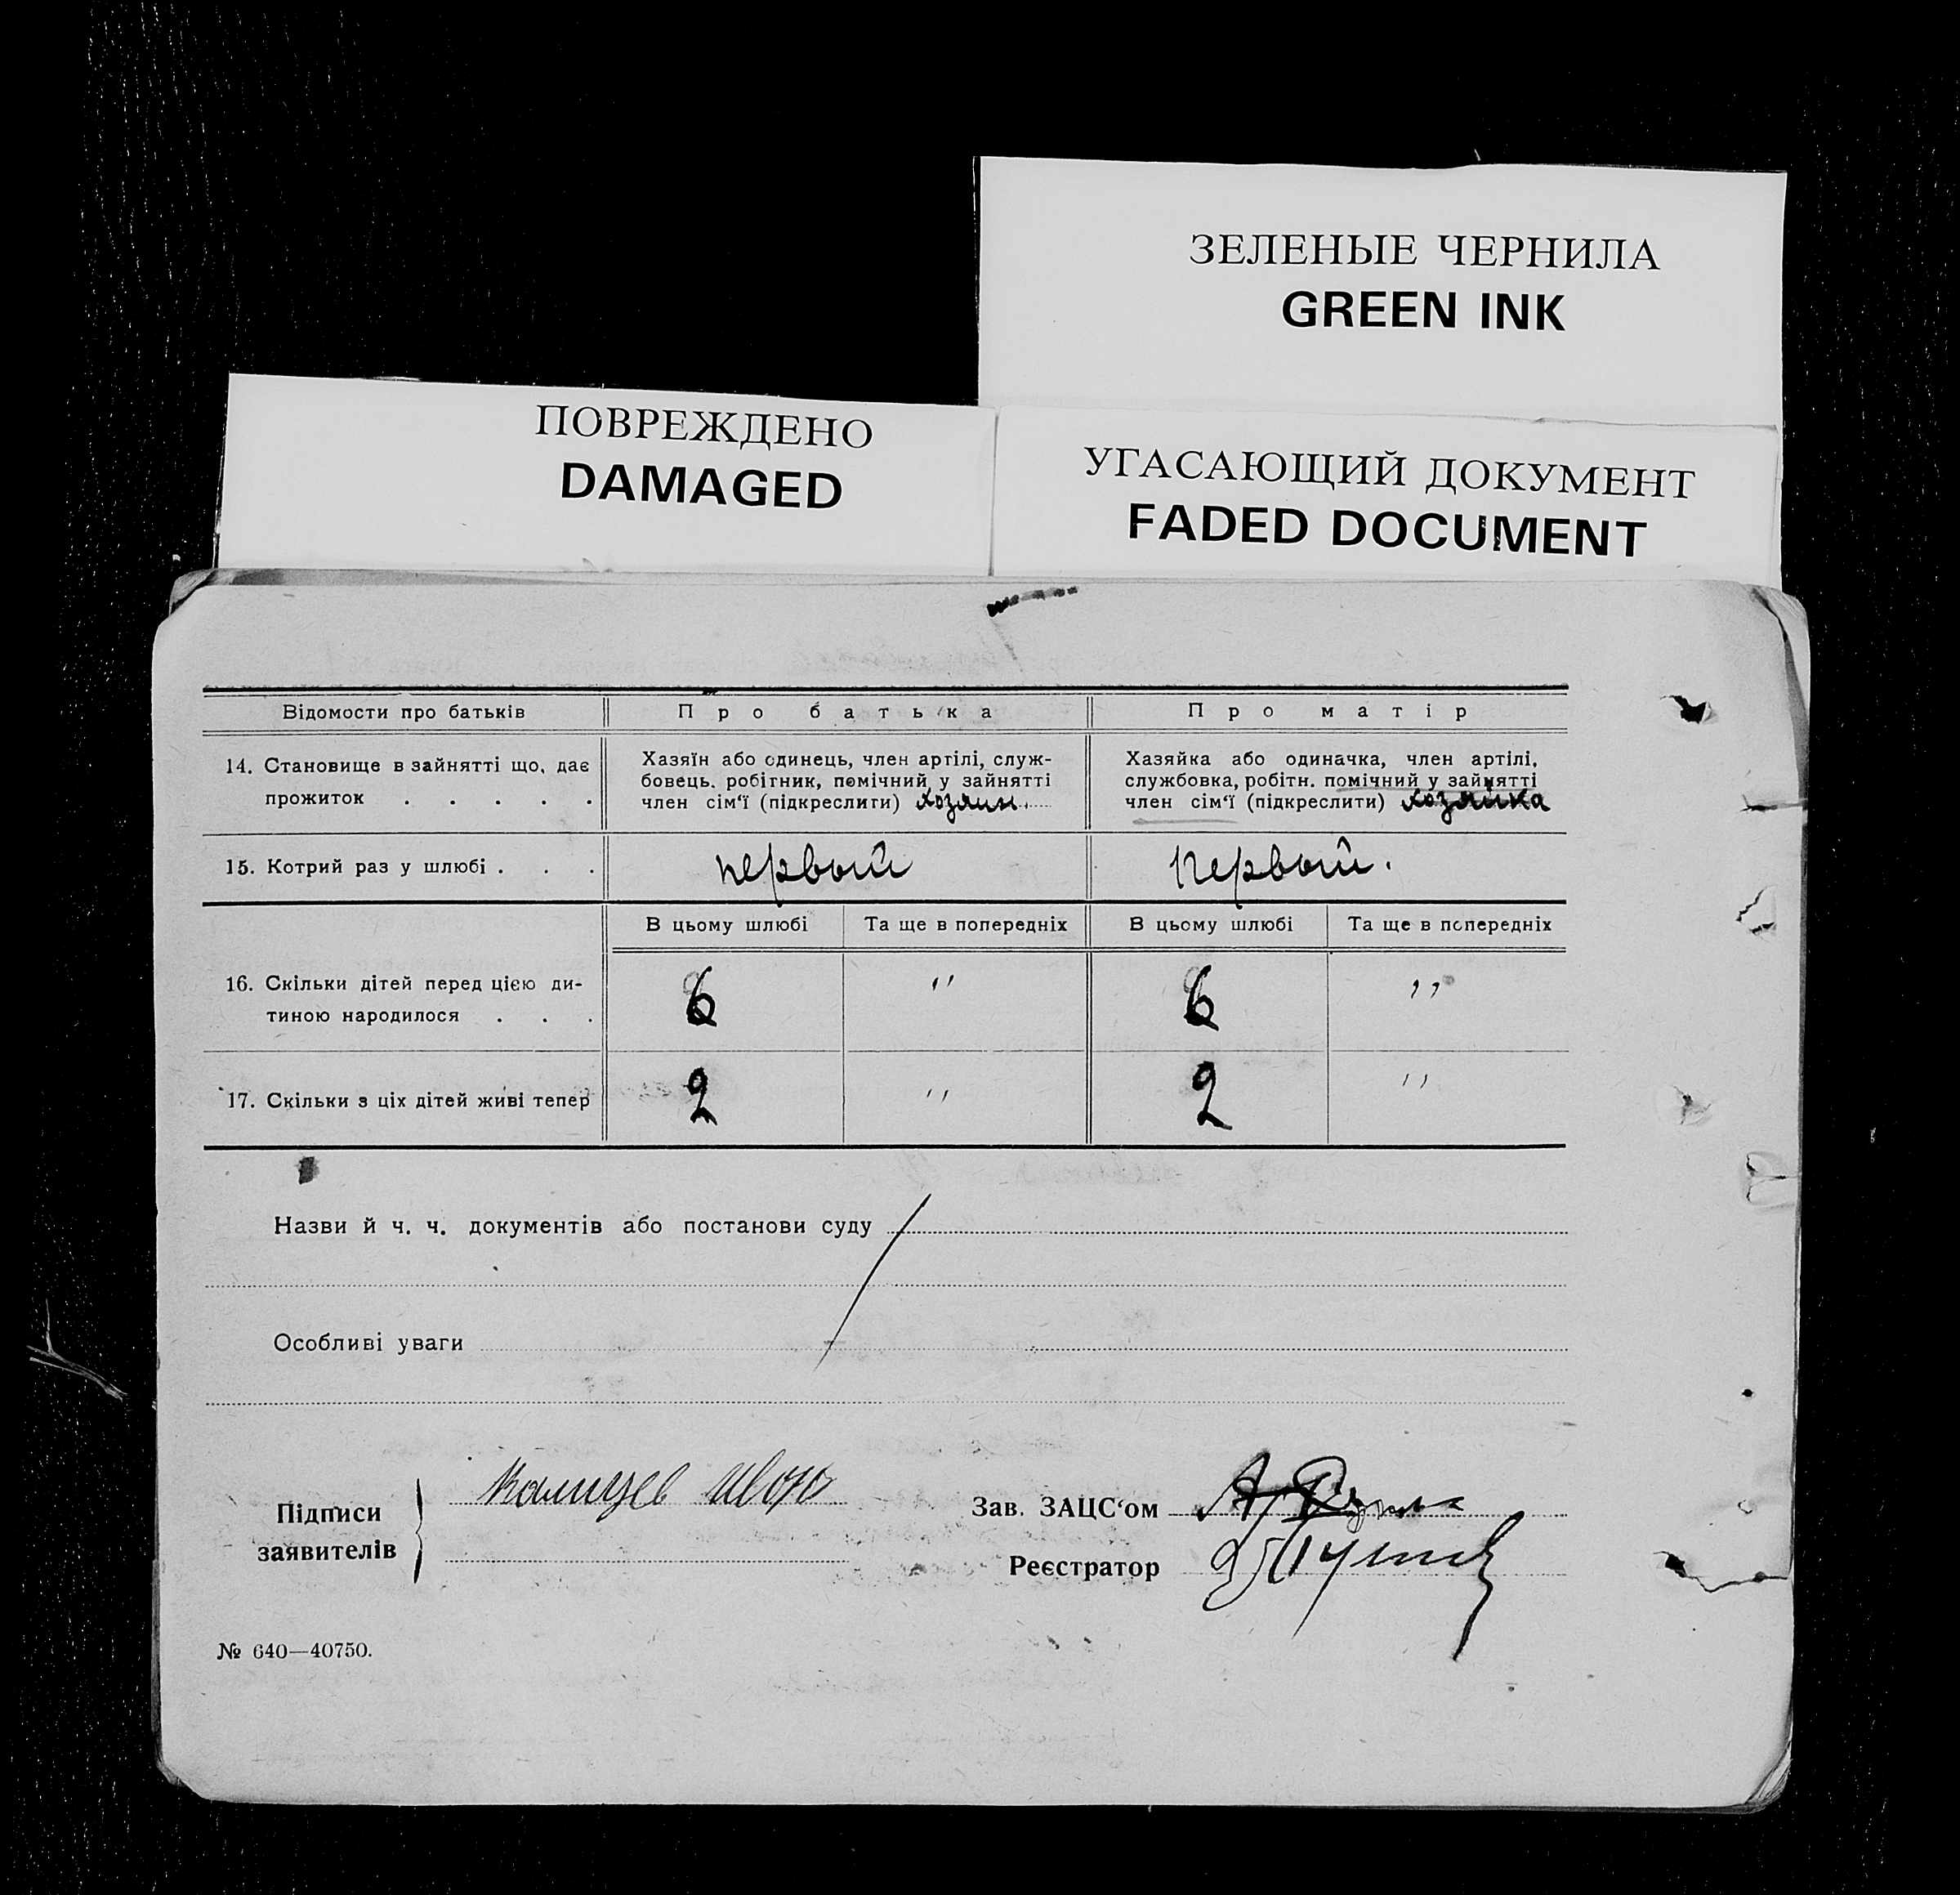 ЗЕЛЕНЫЕ ЧЕРНИЛА
GREEN INK
ПОВРЕЖДЕНО
DAMAGED
УГАСАЮЩИЙ ДОКУМЕНТ
FADED DOCUMENT
Відомости про батьків
Про батька
Про матір
14. Становище в зайнятті що, дає
прожиток . . . . .
Хазяїн або одинець, член артілі, служ-
бовець, робітник, помічний у зайнятті
член сім'ї (підкреслити) хозяин
Хазяйка або одиначка, член артілі,
службовка, робітн. помічний у зайнятті
член сім'ї (підкреслити) хозяйка
15. Котрий раз у шлюбі . . .
первый
первый.
В цьому шлюбі
Та ще в попередніх
В цьому шлюбі
Та ще в попередніх
16. Скільки дітей перед цією ди-
тиною народилося . . .
6
"
6
"
17. Скільки з ціх дітей живі тепер
2
"
2
"
Назви й ч. ч. документів або постанови суду
Особливі уваги
Підписи
заявителів
Зав. ЗАЦС'ом
Реєстратор
№ 640—40750.